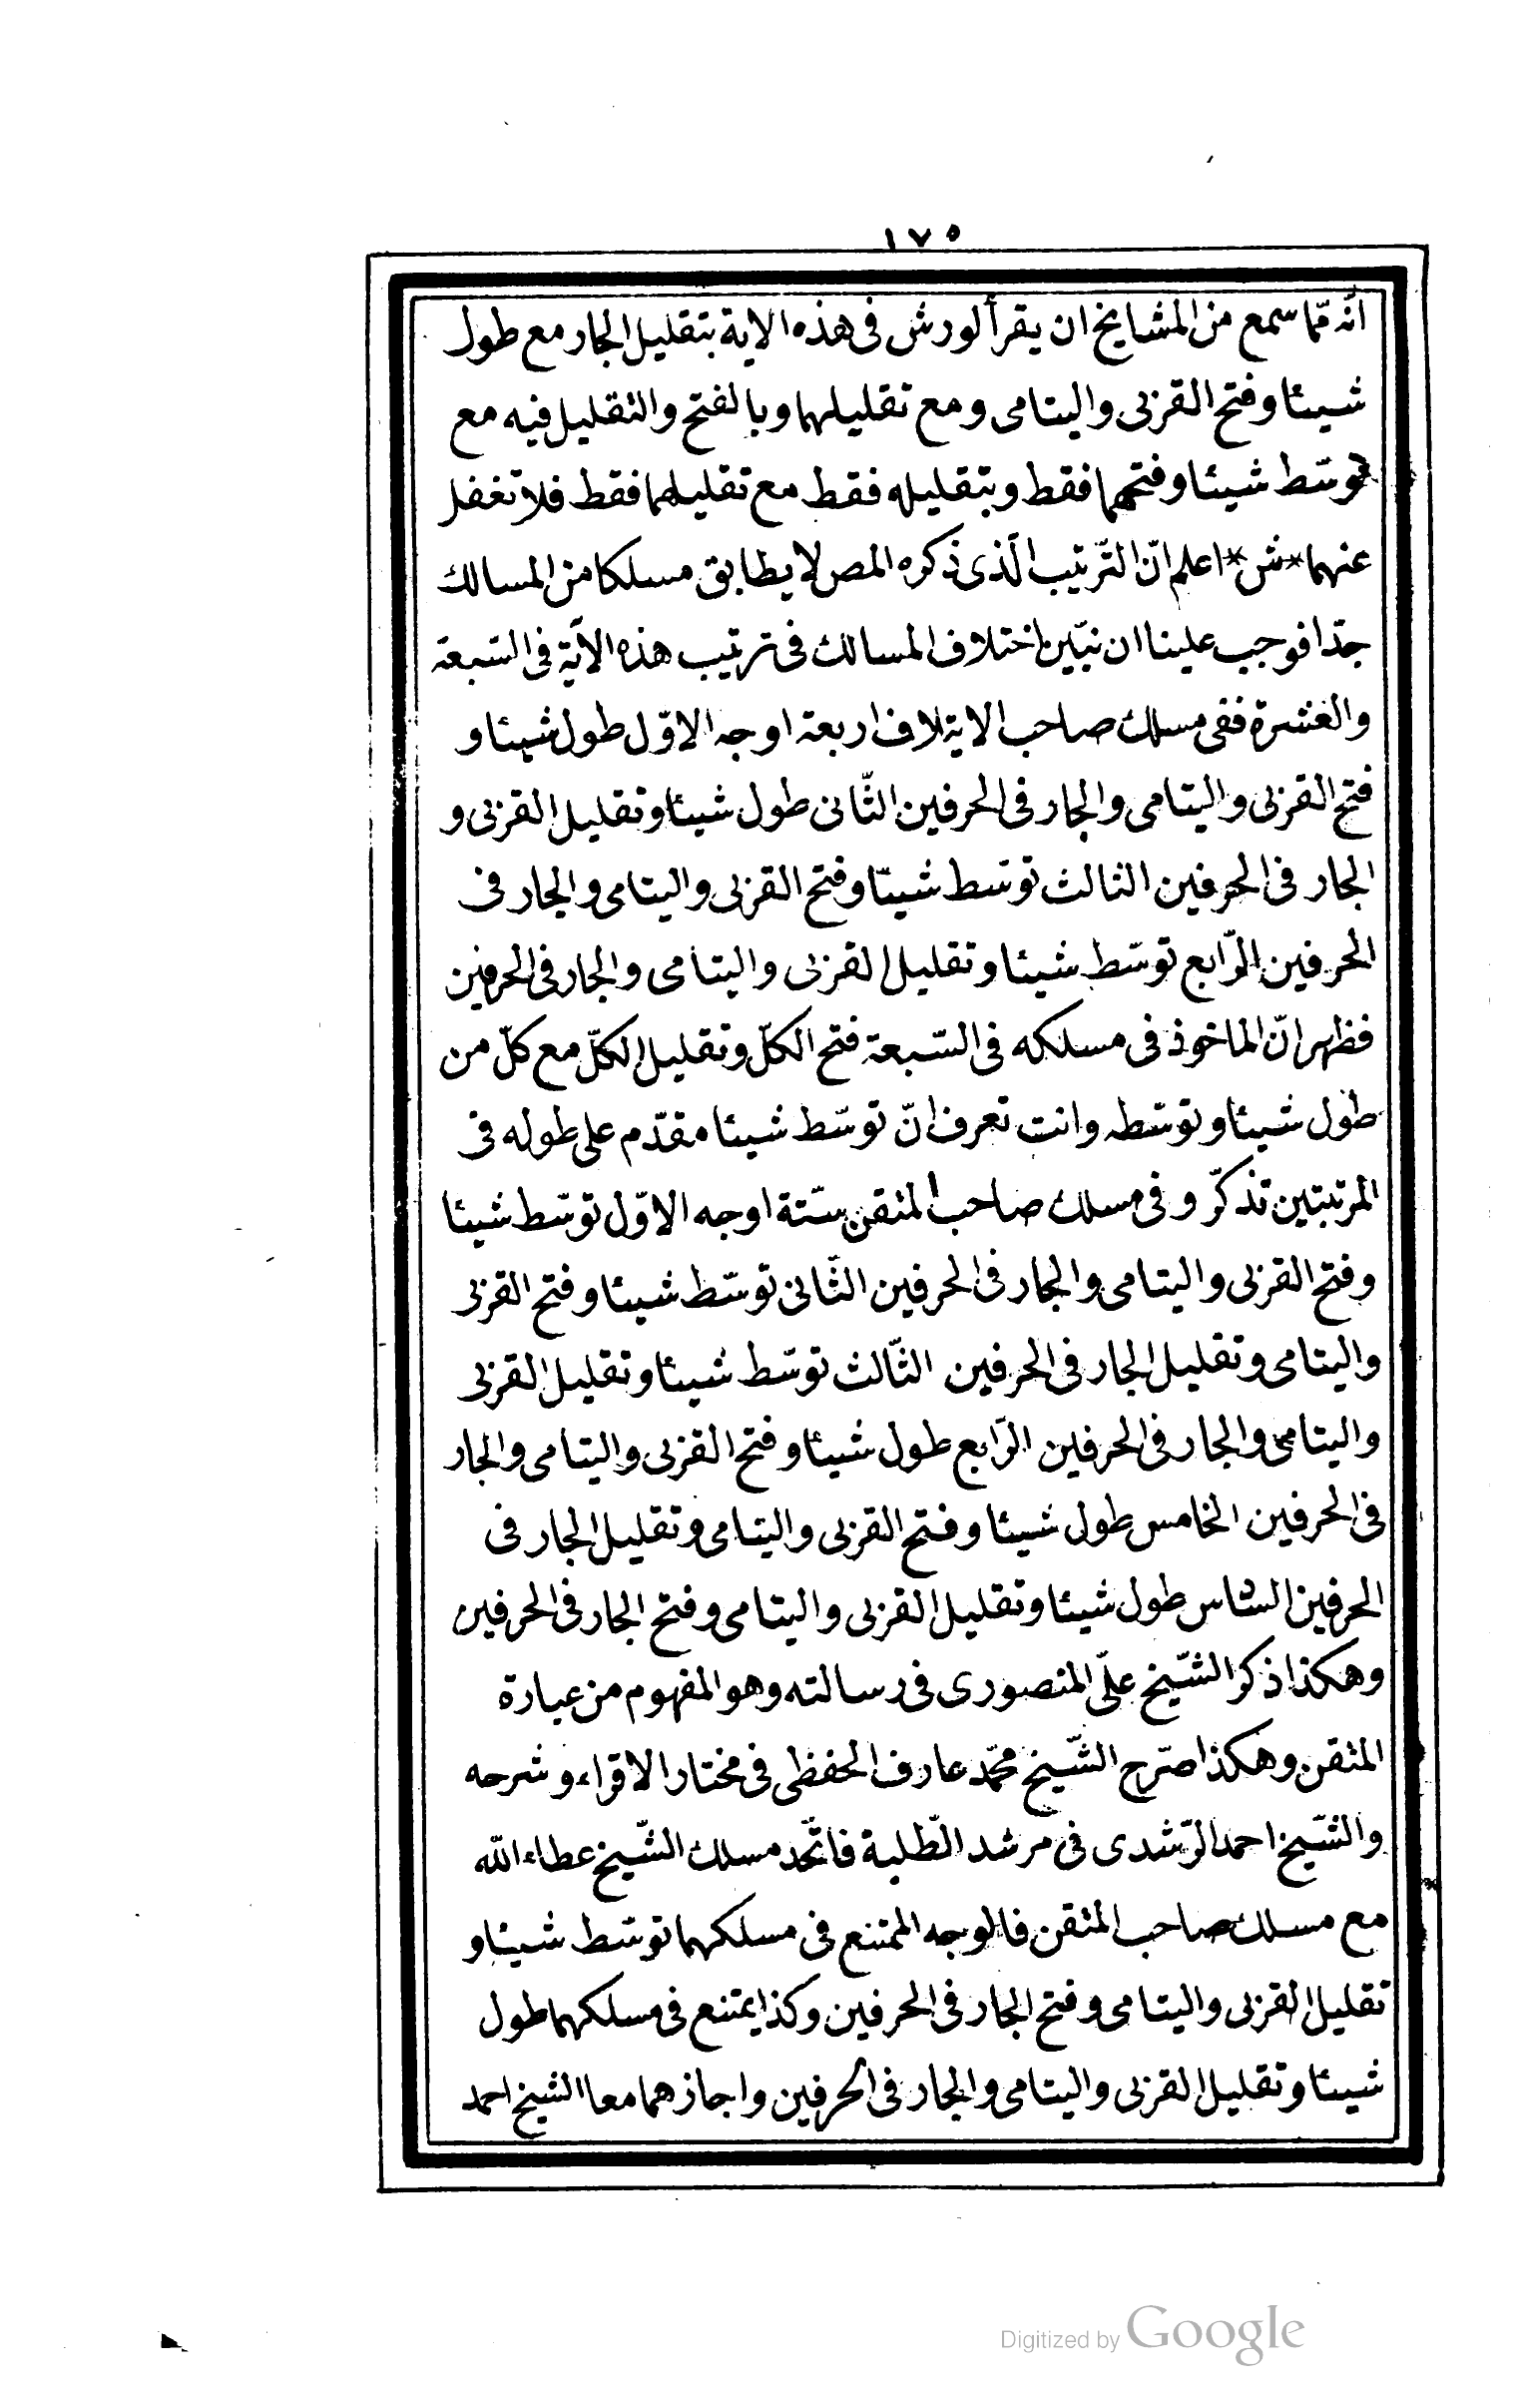 ١٧٥
انّه ممّا سمع من المشايخ ان يقرأ لورش فى هذه الاية بتقليل الجار مع طول
شيئا وفتح القربى واليتامى ومع تقليلهما وبالفتح والتقليل فيه مع
توسّط شيئا وفتحهما فقط وبتقليله فقط مع تقليلهما فقط فلا تغفل
عنهما * ش * اعلم انّ التّرتيب الّذى ذكره المص لا يطابق مسلكا من المسالك
جدّا فوجب علينا ان نبيّن اختلاف المسالك فى ترتيب هذه الآية فى السّبعة
والعشرة ففى مسلك صاحب الايتلاف اربعة اوجه الاوّل طول شيئا و
فتح القربى واليتامى والجار فى الحرفين الثّانى طول شيئا وتقليل القربى و
الجار فى الحرفين الثالث توسّط شيئا وفتح القربى واليتامى والجار فى
الحرفين الرّابع توسّط شيئا وتقليل القربى واليتامى والجار فى الحرفين
فظهر انّ الماخوذ فى مسلكه فى السّبعة فتح الكلّ وتقليل الكلّ مع كلّ من
طول شيئا وتوسّطه وانت تعرف انّ توسّط شيئا مقدّم على طوله فى
المرتبتين تذكّر وفى مسلك صاحب المتقن ستّة اوجه الاوّل توسّط شيئا
وفتح القربى واليتامى والجار فى الحرفين الثّانى توسّط شيئا وفتح القربى
واليتامى وتقليل الجار فى الحرفين الثّالث توسّط شيئا وتقليل القربى
واليتامى والجار فى الحرفين الرّابع طول شيئا وفتح القربى واليتامى والجار
فى الحرفين الخامس طول شيئا وفتح القربى واليتامى وتقليل الجار فى
الحرفين السّادس طول شيئا وتقليل القربى واليتامى وفتح الجار فى الحرفين
وهكذا ذكر الشّيخ علّى المنصورى فى رسالته وهو المفهوم من عبارة
المتقن وهكذا صرّح الشّيخ محمّد عارف الحفظى فى مختار الاقراء وشرحه
والشّيخ احمد الرّشدى فى مرشد الطّلبة فاتّحد مسلك الشّيخ عطاء اللّه
مع مسلك صاحب المتقن فالوجه الممتنع فى مسلكهما توسّط شيئا و
تقليل القربى واليتامى وفتح الجار فى الحرفين وكذا يمتنع فى مسلكهما طول
شيئا وتقليل القربى واليتامى والجار فى الحرفين واجازهما معا الشيخ احمد
Digitized by Google